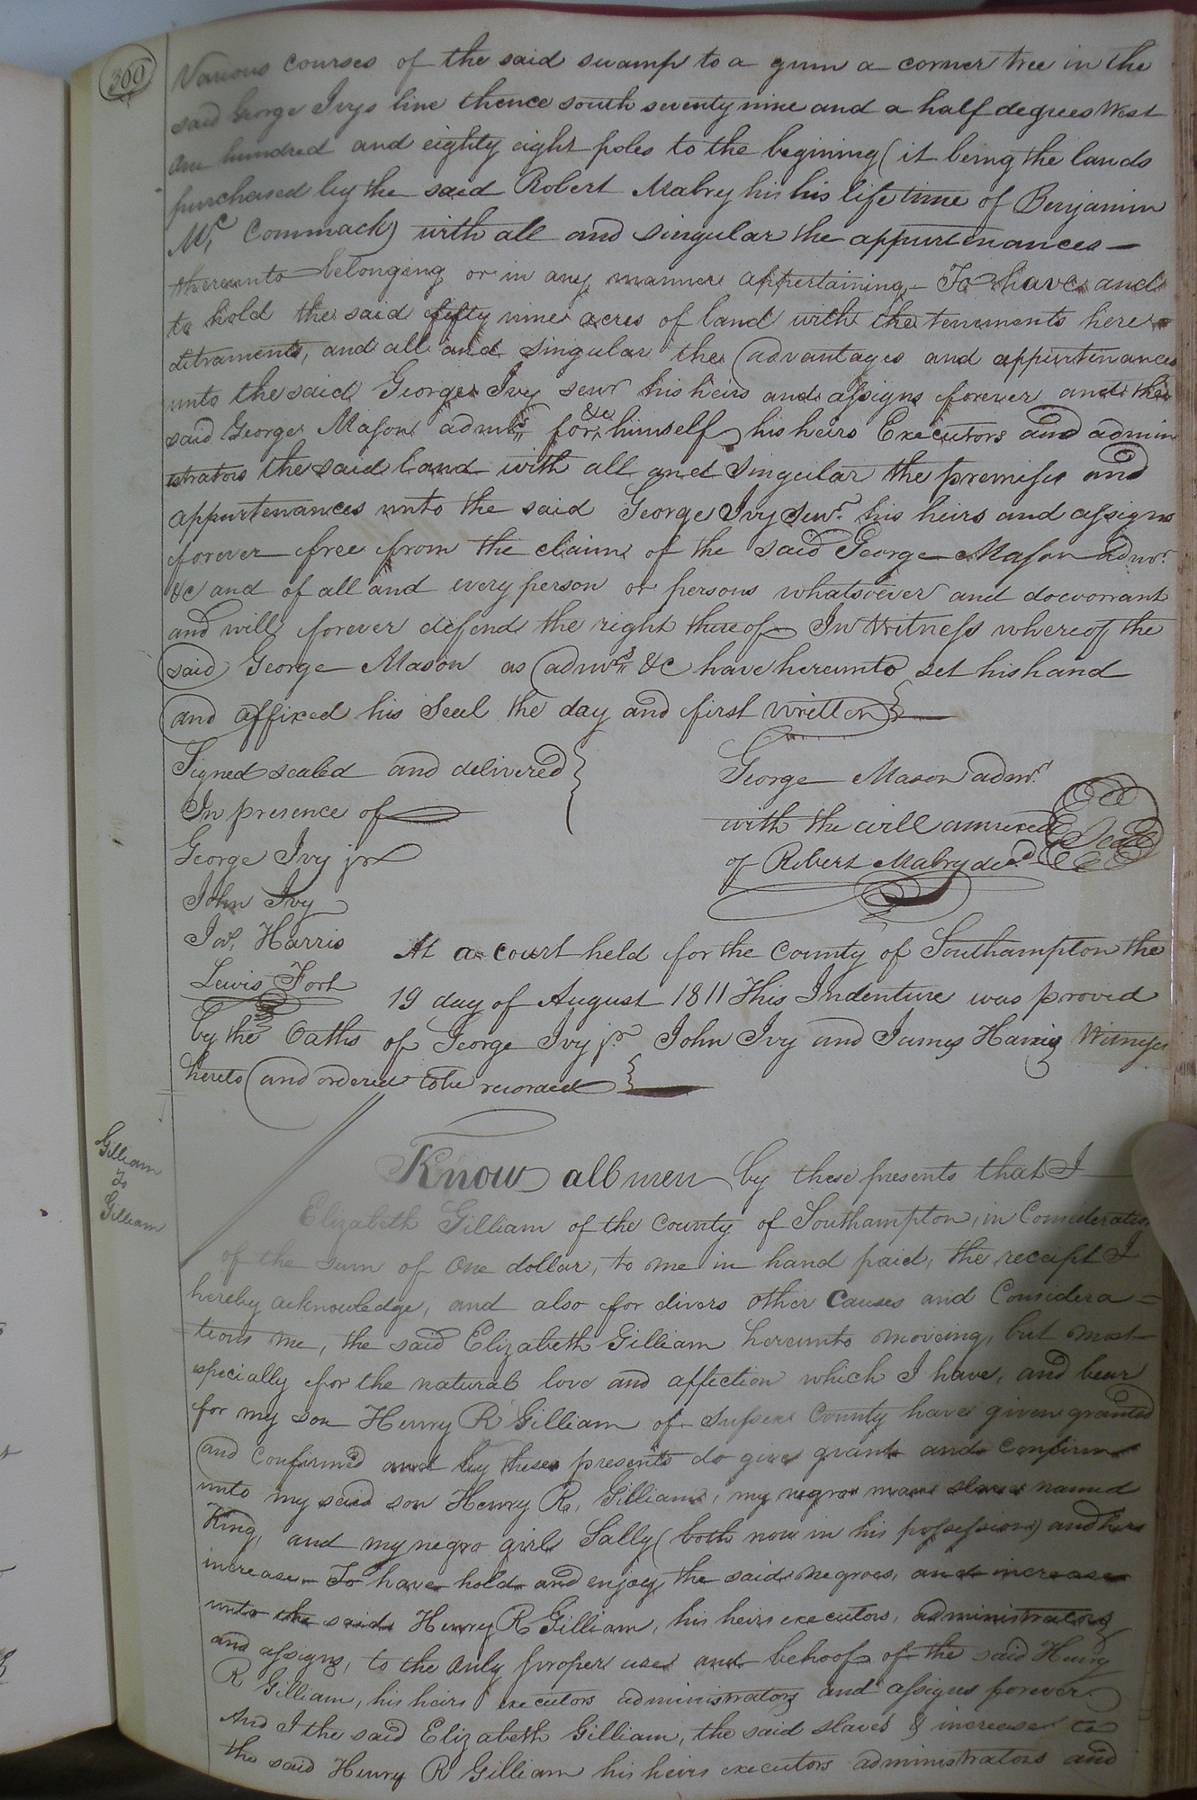 300
Various courses of the said swamp to a gum a corner tree in the
said George Ivys line thence south seventy nine and a half degrees West
One hundred and eighty eight poles to the begining (it being the lands
purchased by the said Robert Mabry his his life time of Benjamin
Mc Commack) with all and singular the appurtenances —
thereunto belonging or in any manner appertaining — To have and
to hold the said fifty nine acres of land with the tenements here =
ditraments, and all and singular the advantages and appurtenances
unto the said George Ivy senr his heirs and assigns forever and the
said George Mason admr for &c himself his heirs Executors and admin
istrators the said land with all and singular the premises and
appurtenances unto the said George Ivy Senr. his heirs and assigns
forever free from the claim of the said George Mason admr.
&c and of all and every person or persons whatsoever and do warrant
and will forever defend the right thereof In Witness whereof the
said George Mason as admr &c have hereunto set his hand
and affixed his Seal the day and first written
Signed sealed and delivered
In presence of
George Ivy jr
John Ivy
Jas. Harris
Lewis Fort
George Mason admr
with the will annexed
of Robert Mabry decd
Seal
At a court held for the County of Southampton the
19 day of August 1811 This Indenture was proved
by the Oaths of George Ivy jr John Ivy and James Harris Witnesses
hereto and ordered to be recorded
Gilliam
To
Gilliam
Know all men by these presents that I
Elizabeth Gilliam of the County of Southampton, in Consideration
of the sum of One dollar, to me in hand paid, the receipt I
hereby acknowledge, and also for divers other Causes and Considera =
tions me, the said Elizabeth Gilliam hereunto moveing, but most
especially for the natural love and affection which I have, and bear
for my son Henry R Gilliam of Sussex County have given granted
and Confirmed and by these presents do give grant and confirm
unto my said son Henry R. Gilliam, my negro man slave named
King, and my negro girl Sally (both now in his possession) and her
increase — To have hold and enjoy the said negroes, and increase
unto the said Henry R Gilliam, his heirs executors, administrators
and assigns, to the only proper use and behoof of the said Henry
R Gilliam, his heirs executors administrators and assigns forever
And I the said Elizabeth Gilliam, the said slaves & increase to
the said Henry R Gilliam his heirs executors administrators and